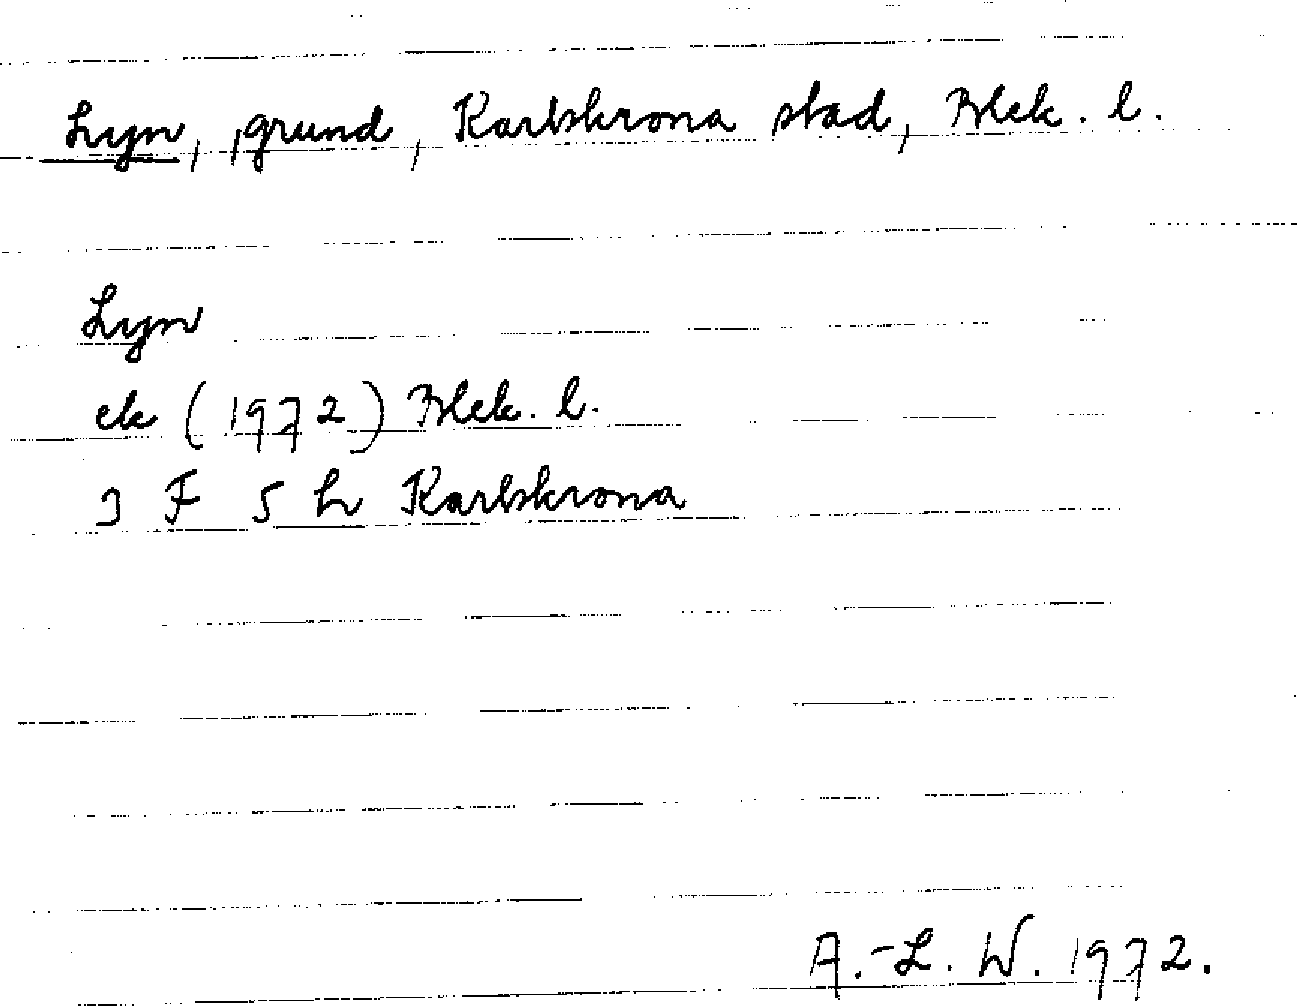 Lyn, grund, Karlskrona stad, Blek. l.
Lyn
ek (1972) Blek. l.
3 F 5 h Karlskrona
A.-L. W. 1972.